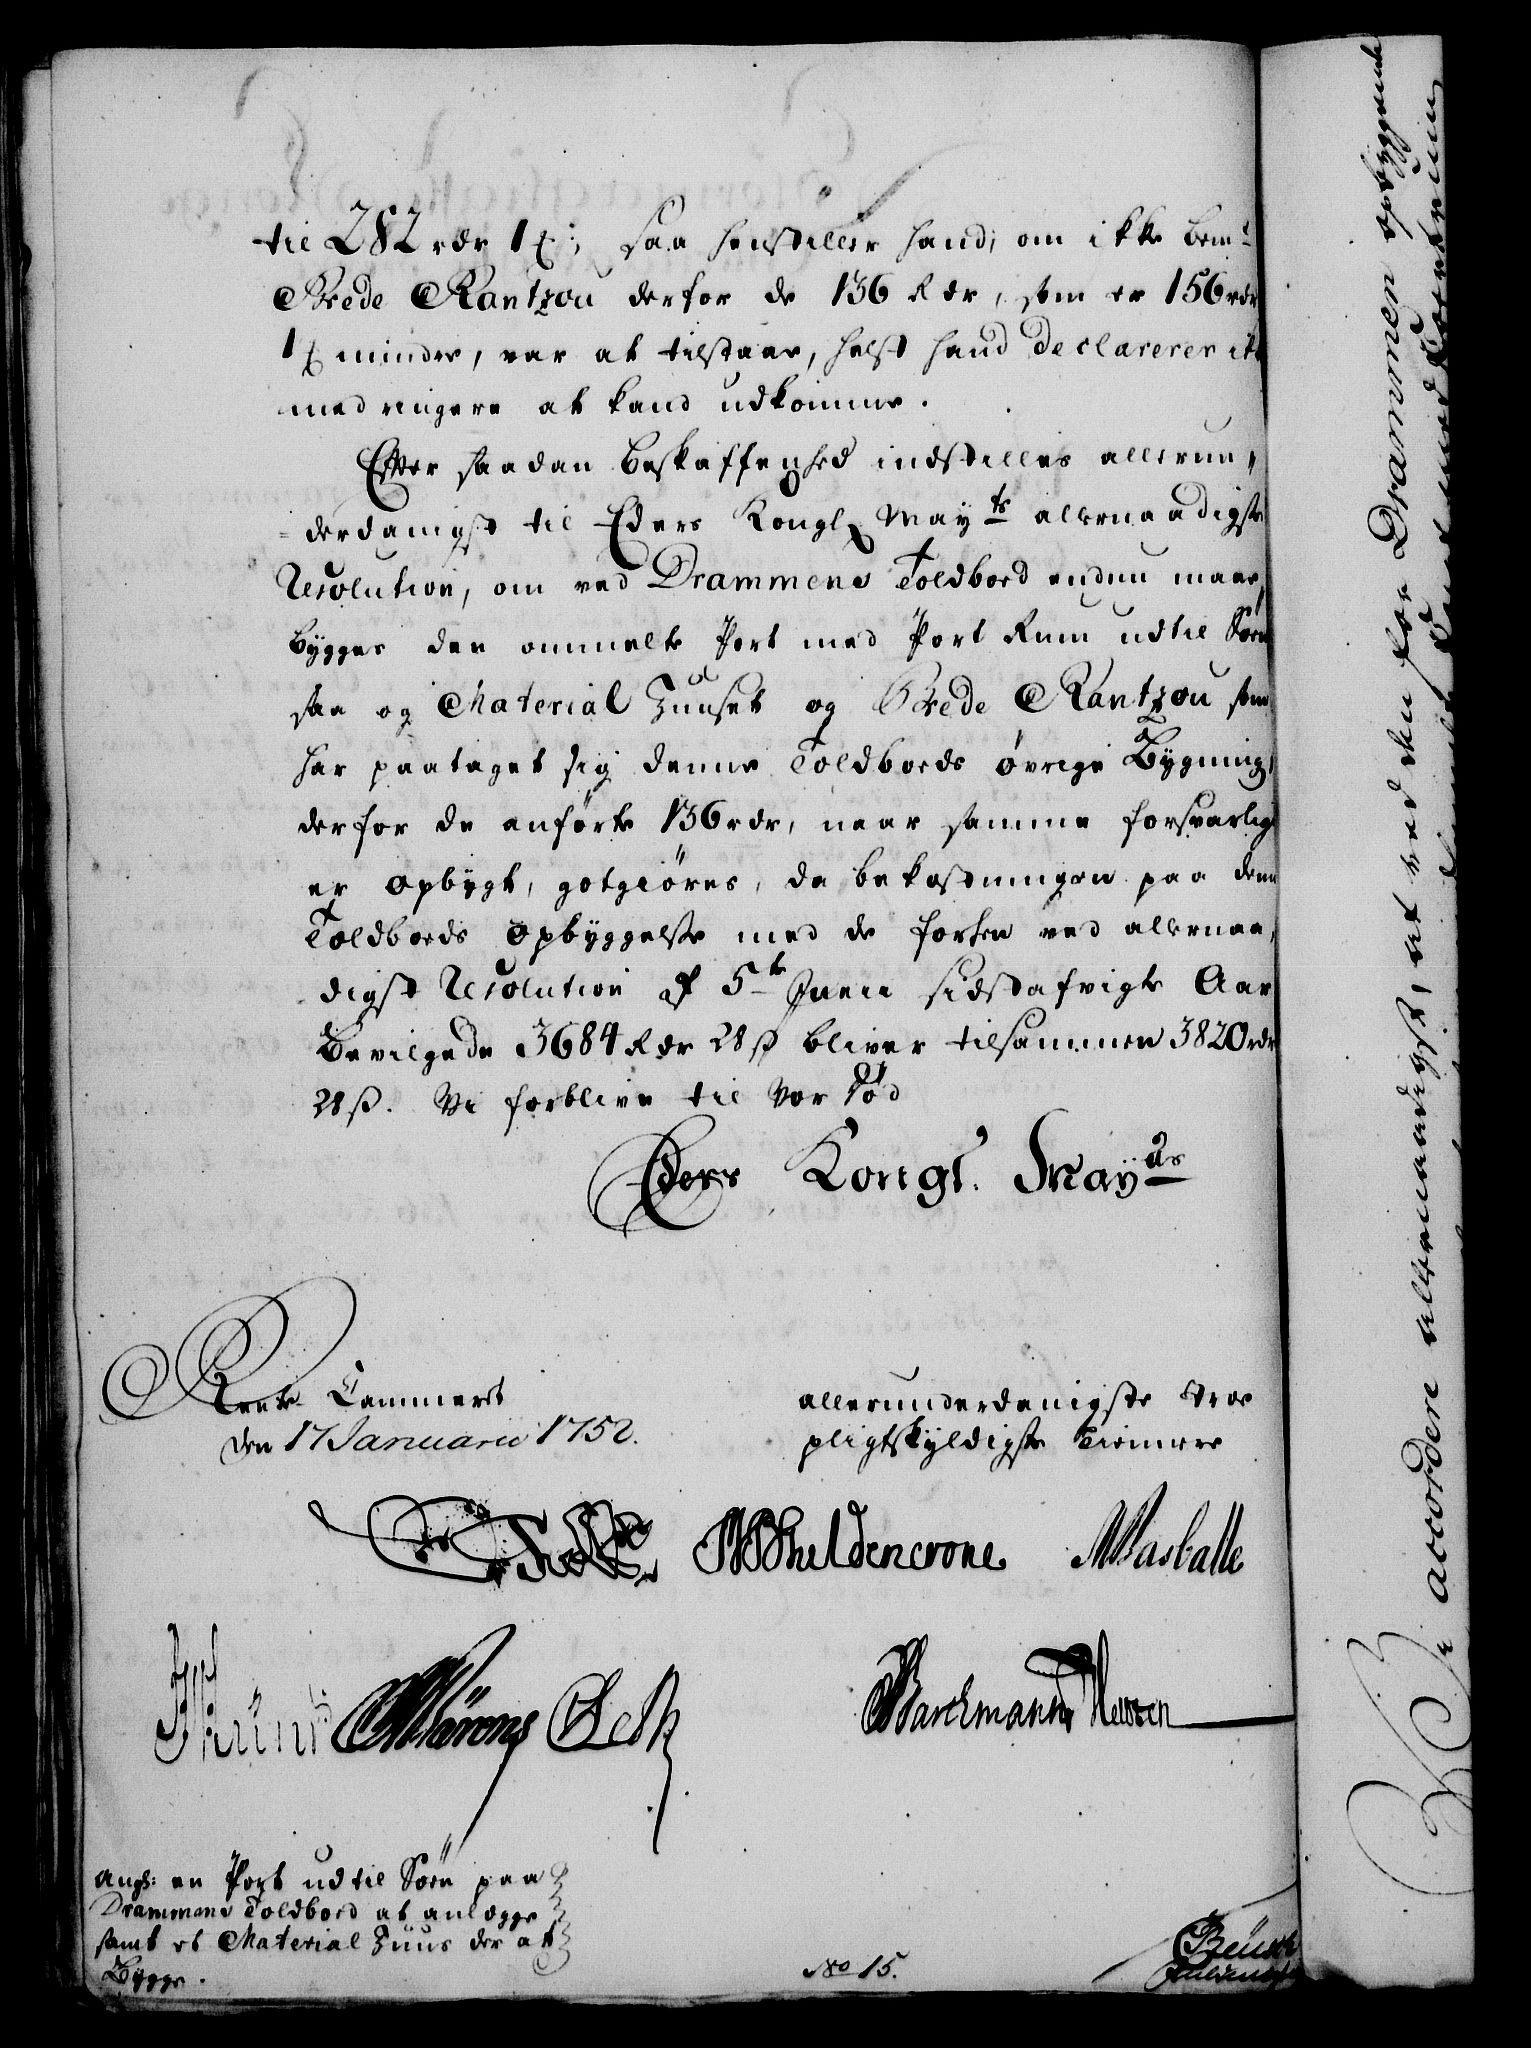 til 282 rdr 1 ℔; saa henstiller hand; om ikke bemte
Brede Rantzou derfor de 136 Rdr, som er 156 rdr
1 ℔ mindre, var at tilstaae, helst hand declarerer ikke
med ringere at kand udkomme.
Efter saadan beskaffenhed indstilles allerun,,
derdanigst til Eders Kongl Mayts allernaadigste
Resolution, om ved Drammens Toldboed endnu maae
bygges den ommelte Port med Port Rum udtil Søen
saa og Material Huuset og Brede Rantzou som
har paataget sig denne Toldboeds øvrige Bygning,
derfor de anførte 136 rdr, naar samme forsvarlig
er opbygt, gotgiöres, da bekostningen paa denne
Toldboeds opbyggelse med de forhen ved allernaa,
digst Resolution af 5te Junii sidstafvigte Aar
Bevilgede 3684 Rdr 28 ß bliver tilsammen 3820 rdr
28 ß. Vi forblive til Vor Død
Eders Kongl. Mayts
Rente Cammeret
den 17 Januarii 1752.
allerunderdanigste troe
pligtskyldigste tienere
Scheldencrone
Barchmann
angl: en Port udtil Søen paa
Drammens Toldboed at anlegge
samt et Material Huus der at
Bygge.
No 15.
Vi accordere allernaadigst, at ved den for Drammen opbyggende